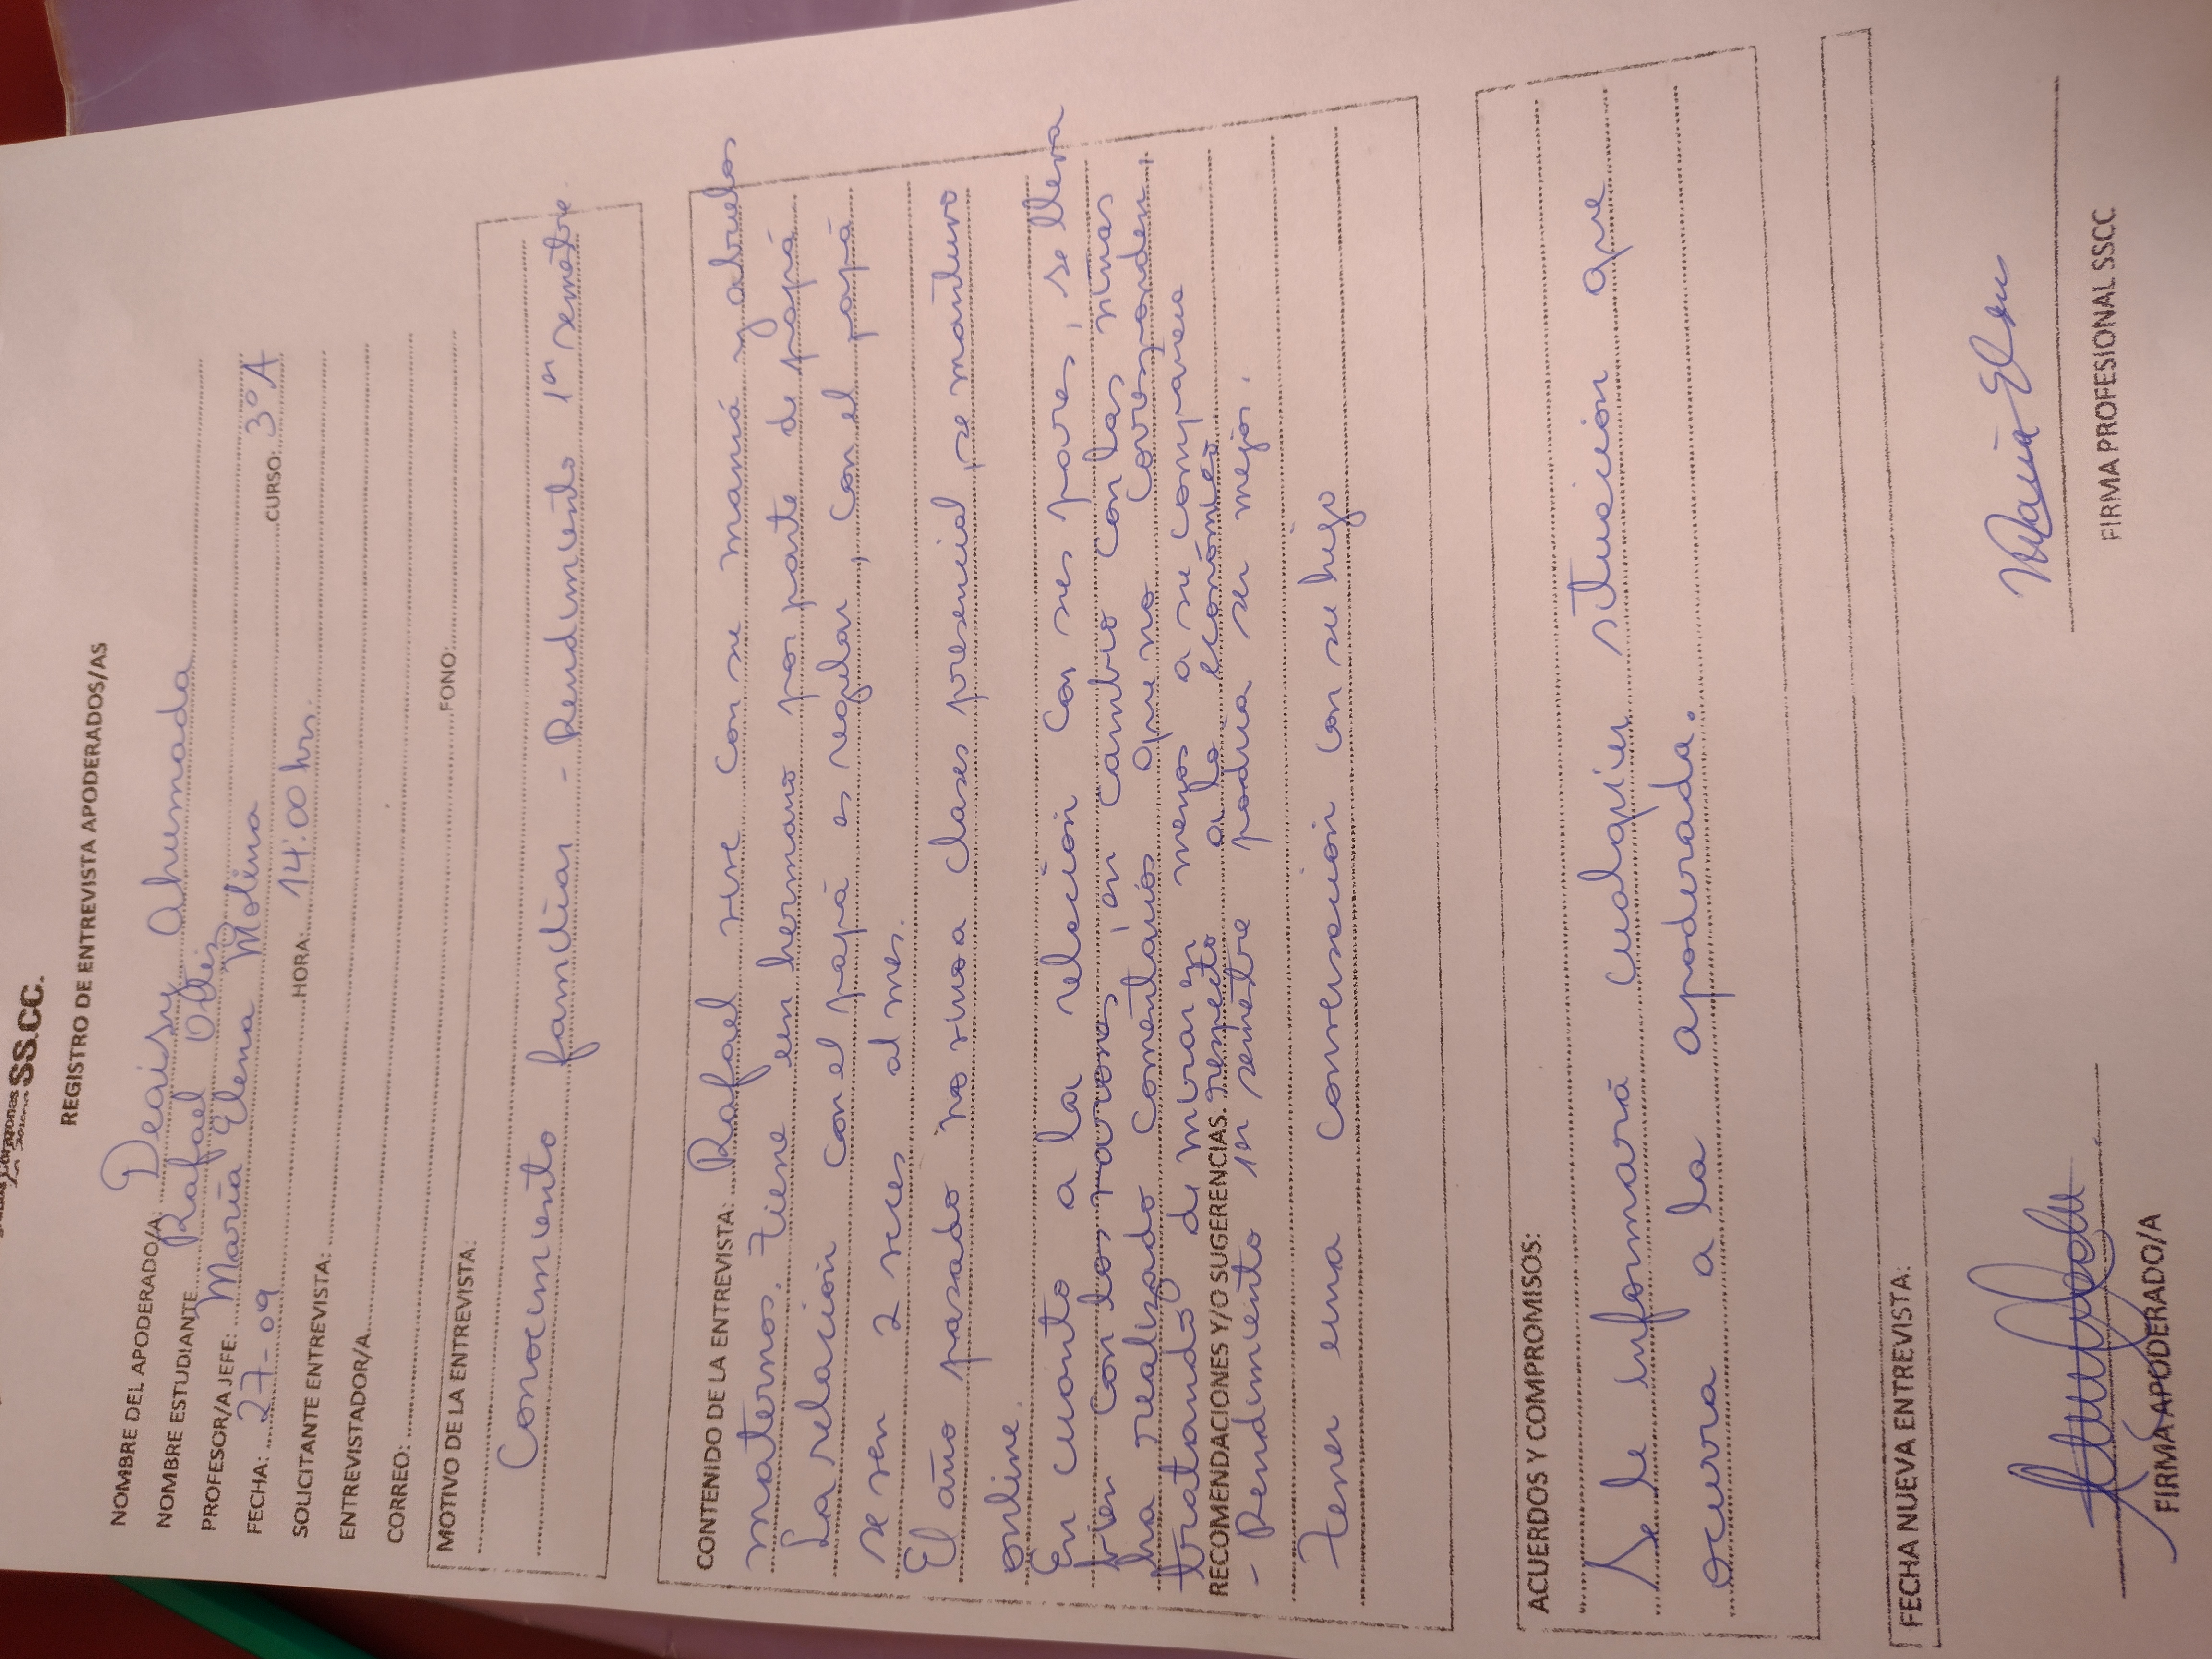 SS.CC.
REGISTRO DE ENTREVISTA APODERADOS/AS
NOMBRE DEL APODERADO/A: Deaisy Ahumada
NOMBRE ESTUDIANTE Rafael
PROFESOR/A JEFE: María Elena Molina
FECHA: 27-09 CURSO: 3°A
SOLICITANTE ENTREVISTA: HORA: 14:00 hrs.
ENTREVISTADOR/A
CORREO: FONO:
MOTIVO DE LA ENTREVISTA:
Conocimiento familiar - Rendimiento 1er semestre.
CONTENIDO DE LA ENTREVISTA: Rafael vive con su mamá y abuelos
maternos. Tiene un hermano por parte de papá
La relación con el papá es regular, con el papá
se ven 2 veces al mes.
El año pasado no vino a clases presencial, se mantuvo
online.
En cuanto a la relación con sus pares, se lleva
bien con los varones, en cambio con las niñas
ha realizado comentarios que no corresponden,
tratando de mirar en menos a su compañera
respecto a lo económico
RECOMENDACIONES Y/O SUGERENCIAS.
- Rendimiento 1er semestre podría ser mejor.
Tener una conversación con su hijo
ACUERDOS Y COMPROMISOS:
Se le informará cualquier situación que
ocurra a la apoderada.
FECHA NUEVA ENTREVISTA:
María Elena
FIRMA APODERADO/A FIRMA PROFESIONAL SSCC